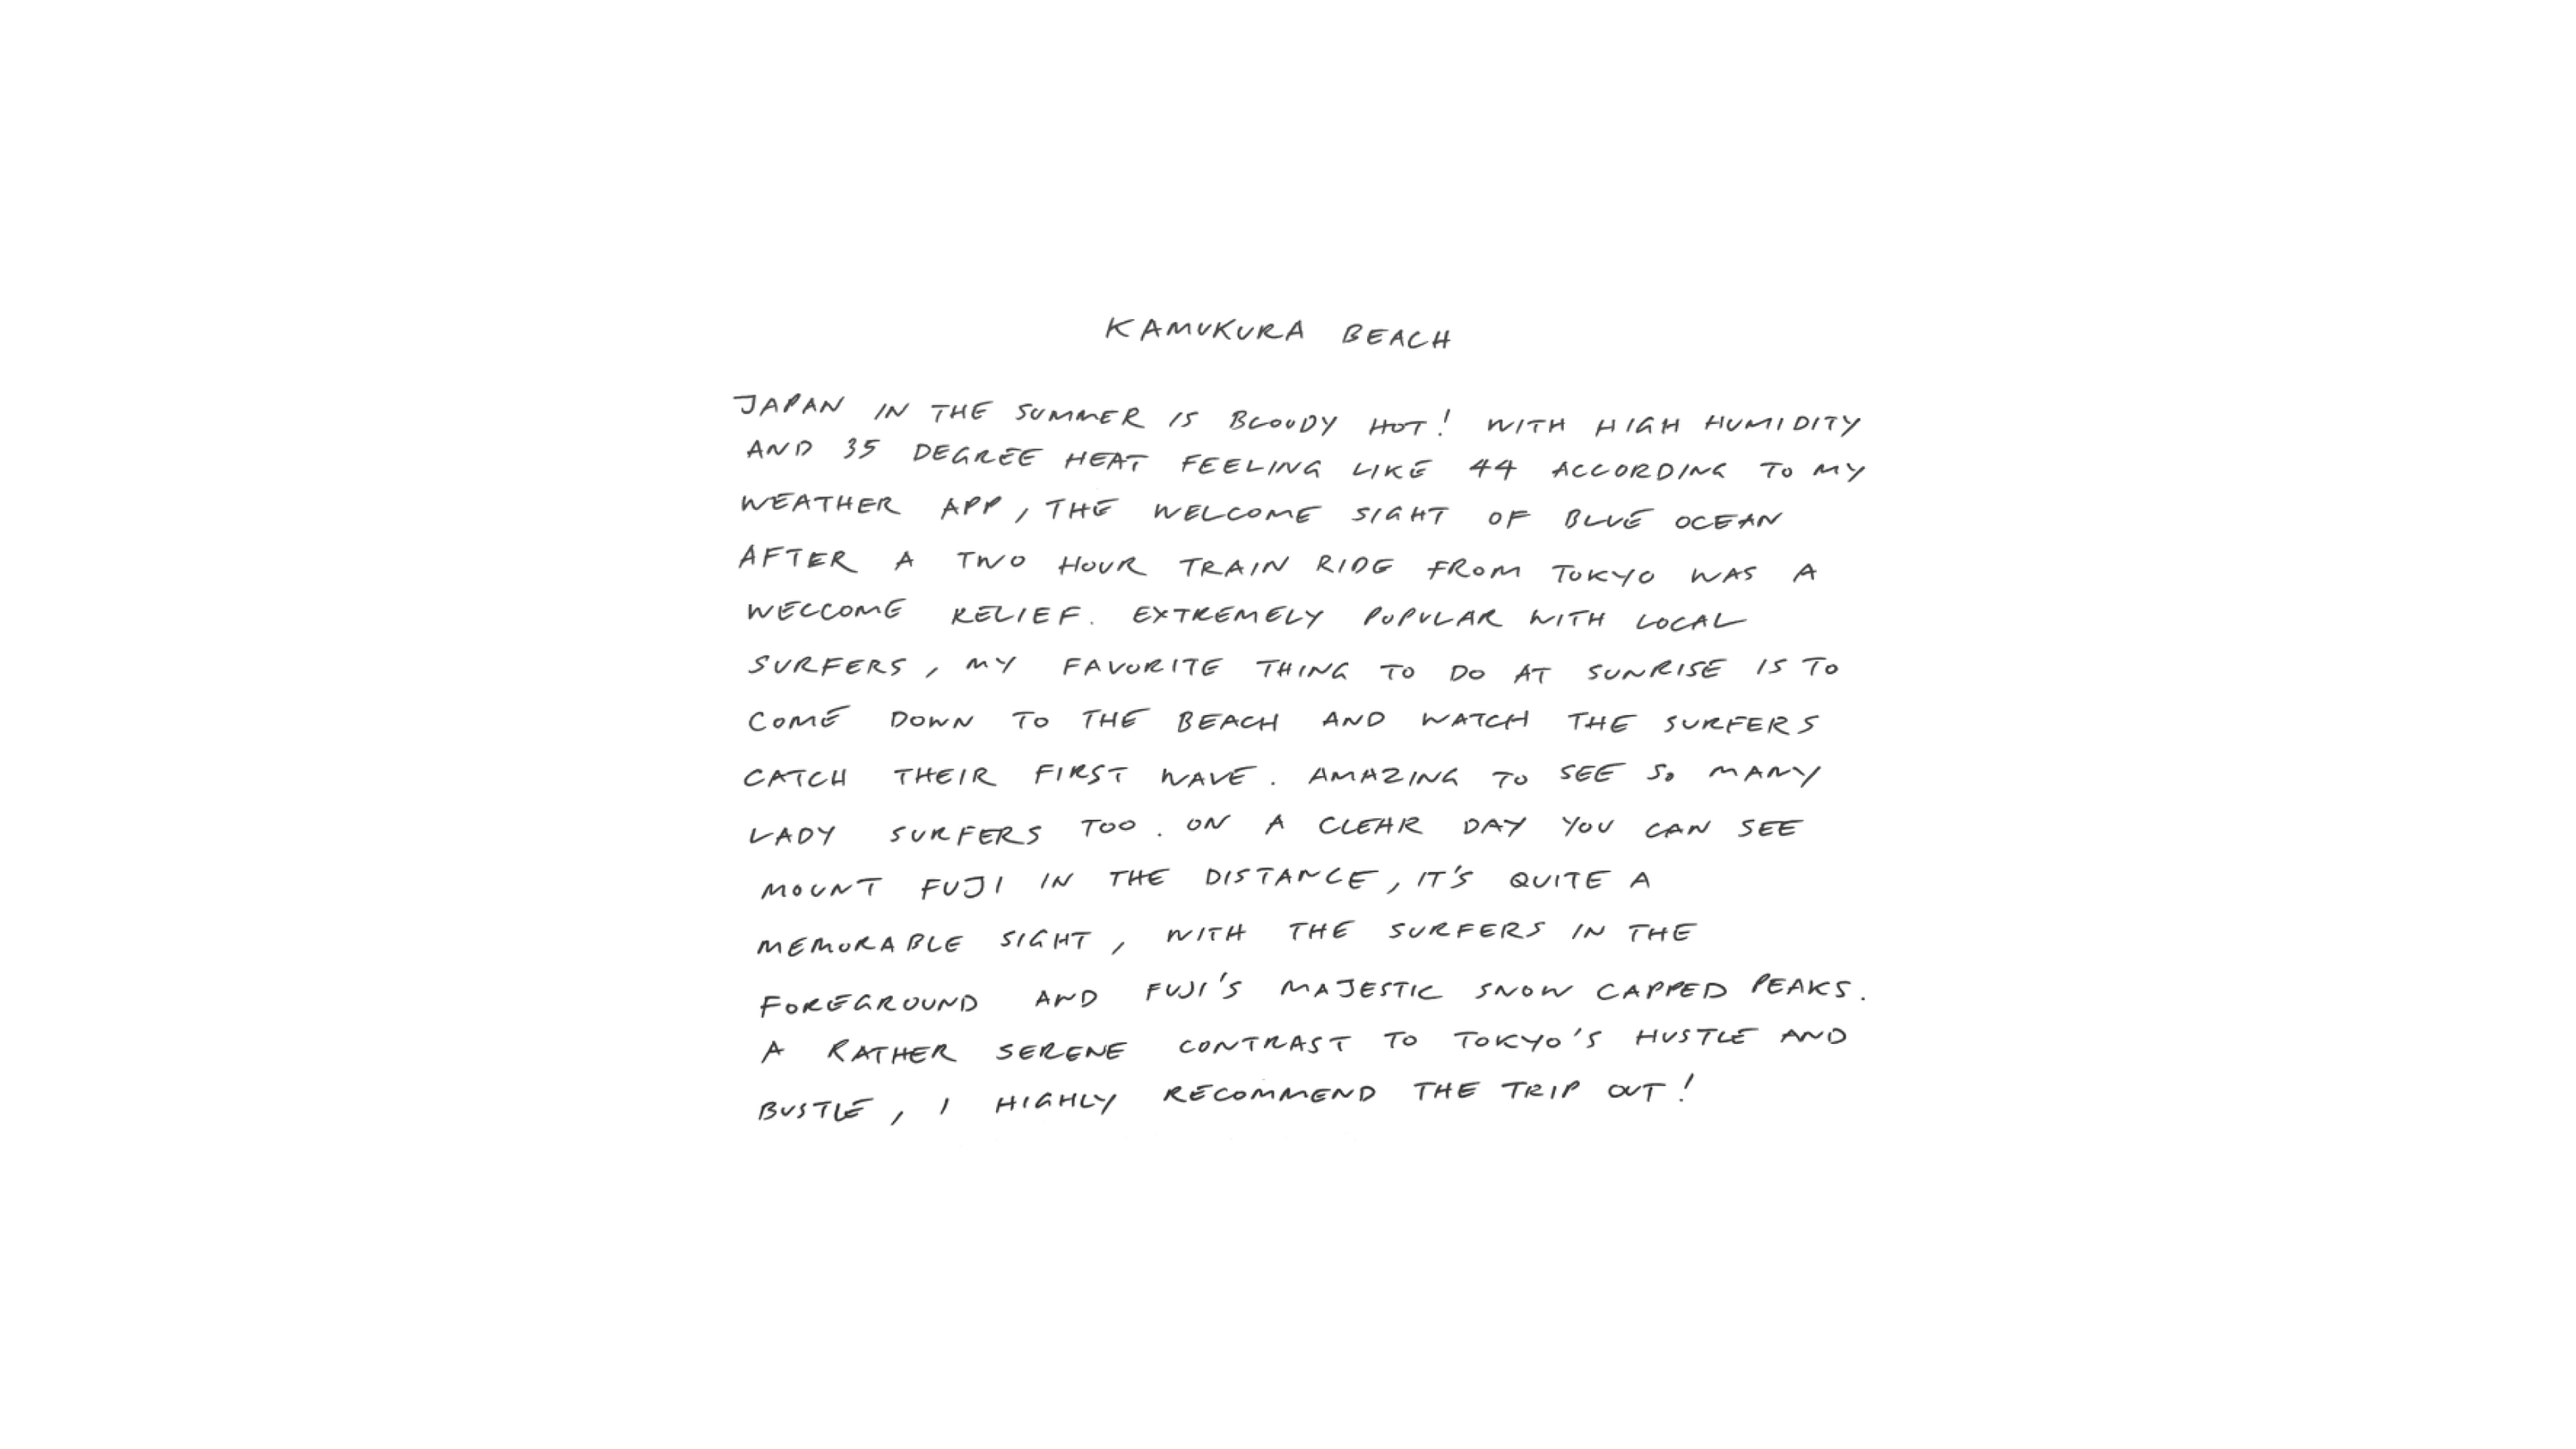 KAMUKURA BEACH
JAPAN IN THE SUMMER IS BLOODY HOT! WITH HIGH HUMIDITY
AND 35 DEGREE HEAT FEELING LIKE 44 ACCORDING TO MY
WEATHER APP, THE WELCOME SIGHT OF BLUE OCEAN
AFTER A TWO HOUR TRAIN RIDE FROM TOKYO WAS A
WELCOME RELIEF. EXTREMELY POPULAR WITH LOCAL
SURFERS, MY FAVORITE THING TO DO AT SUNRISE IS TO
COME DOWN TO THE BEACH AND WATCH THE SURFERS
CATCH THEIR FIRST WAVE. AMAZING TO SEE SO MANY
LADY SURFERS TOO. ON A CLEAR DAY YOU CAN SEE
MOUNT FUJI IN THE DISTANCE, IT'S QUITE A
MEMORABLE SIGHT, WITH THE SURFERS IN THE
FOREGROUND AND FUJI'S MAJESTIC SNOW CAPPED PEAKS.
A RATHER SERENE CONTRAST TO TOKYO'S HUSTLE AND
BUSTLE, I HIGHLY RECOMMEND THE TRIP OUT!